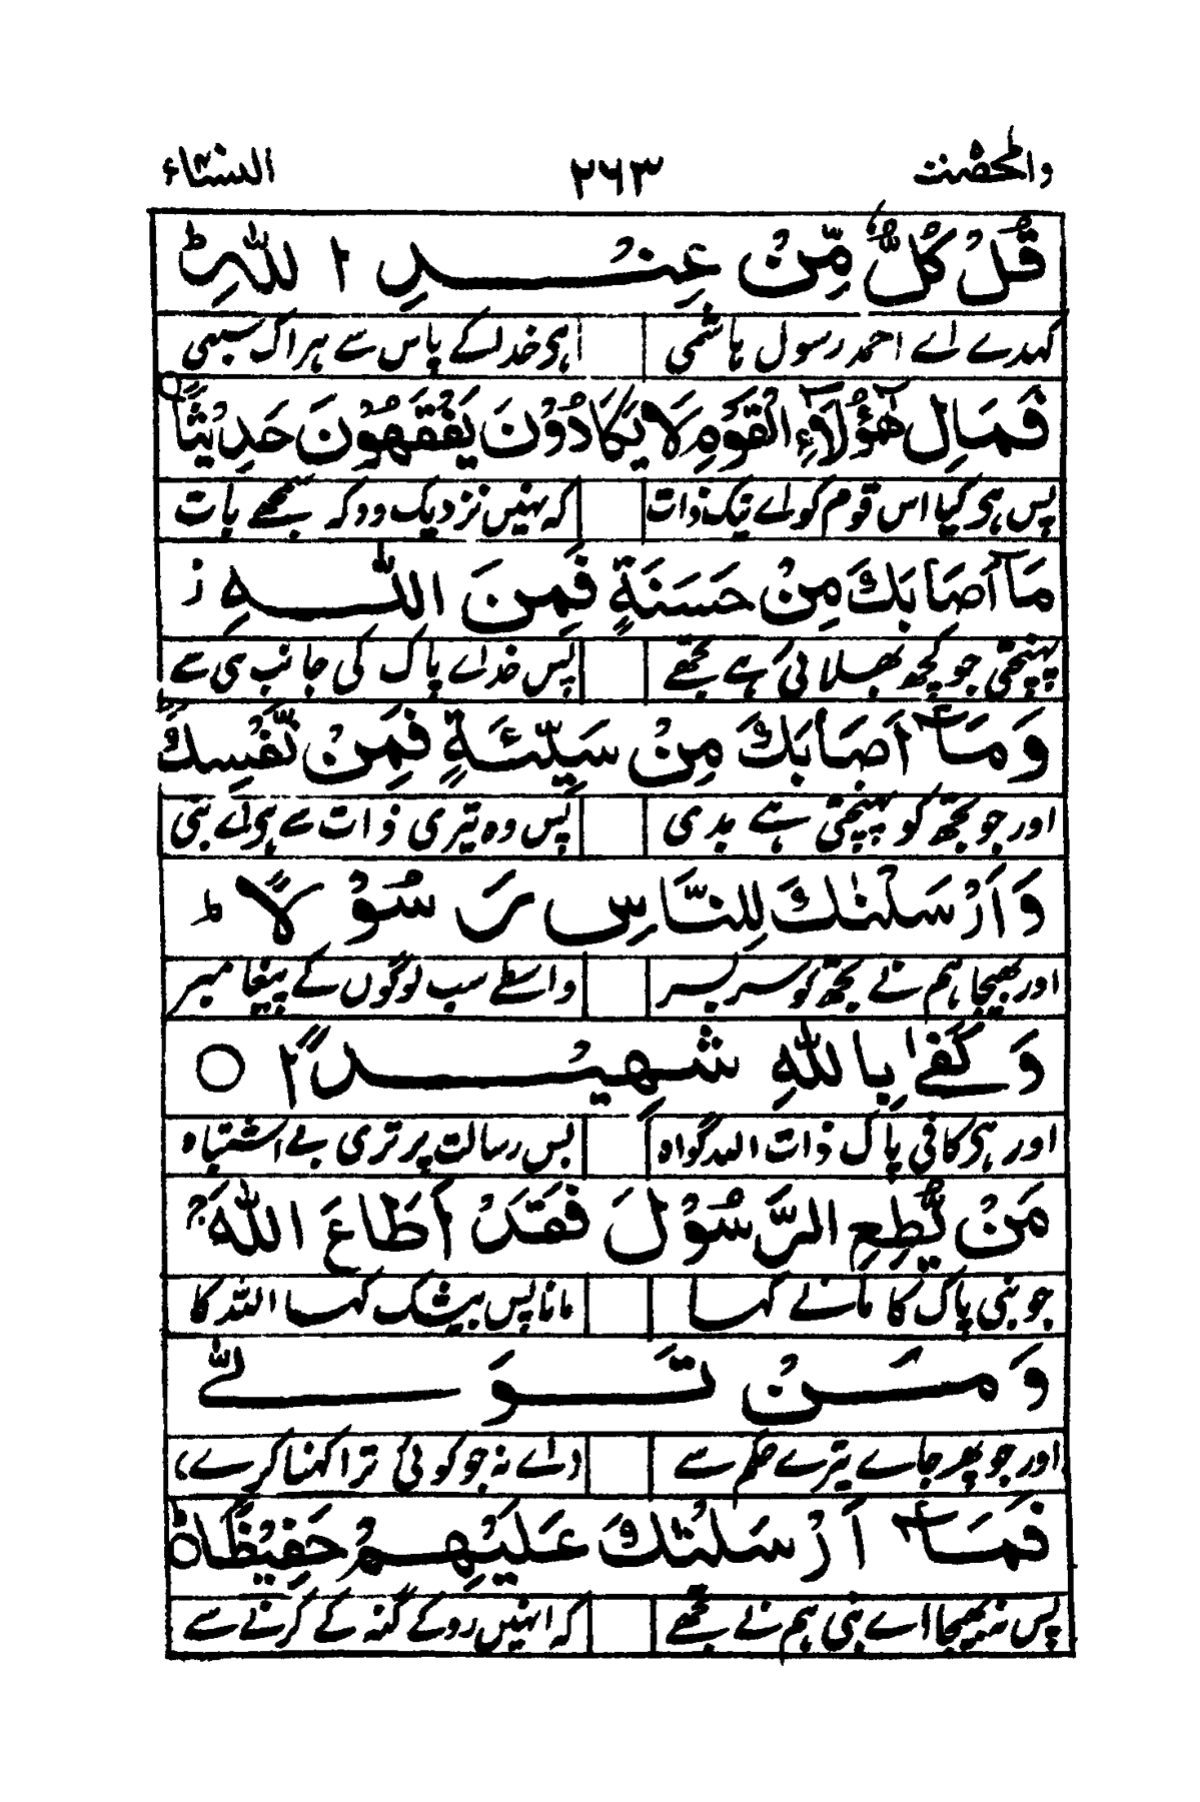 والمحصنت ۲۶۳ النساء
قُلْ كُلٌّ مِّنْ عِنْدِ اللّٰهِ ؕ
کہدے اے احمد رسول ہاشمی ہی خدا کے پاس سے ہر اک سبھی
فَمَالِ هٰٓؤُلَآءِ الْقَوْمِ لَا يَكَادُوْنَ يَفْقَهُوْنَ حَدِيْثًا ○
پس ہی کیا اس قوم کو اے نیک ذات کہ نہیں نزدیک وہ کہ سمجھے بات
مَاۤ اَصَابَكَ مِنْ حَسَنَةٍ فَمِنَ اللّٰهِ ز
پہنچتی جو کچھ بھلائی ہے تجھے پس خداے پاک کی جانب ہی سے
وَمَاۤ اَصَابَكَ مِنْ سَيِّئَةٍ فَمِنْ نَّفْسِكَ ؕ
اور جو تجھ کو پہنچتی ہے بدی پس وہ تیری ذات سے ہی اے نبی
وَاَرْسَلْنٰكَ لِلنَّاسِ رَسُوْلًا ؕ
اور بھیجا ہم نے تجھ کو سر بسر واسطے سب لوگوں کے پیغامبر
وَكَفٰى بِاللّٰهِ شَهِيْدًا ○
اور ہی کافی پاک ذات اللہ گواہ بس رسالت پر تری بے اشتباہ
مَنْ يُّطِعِ الرَّسُوْلَ فَقَدْ اَطَاعَ اللّٰهَ ۚ
جو نبی پاک کا مانے کہا مانا پس بیشک کہا اللہ کا
وَمَنْ تَوَلّٰى
اور جو پھر جاے تیرے حکم سے (اے نہ جو کوئی ترا کہنا کرے)
فَمَاۤ اَرْسَلْنٰكَ عَلَيْهِمْ حَفِيْظًا ○ؕ
پس نہ بھیجا اے نبی ہم نے تجھے کہ انہیں روکے گنہ کے کرنے سے